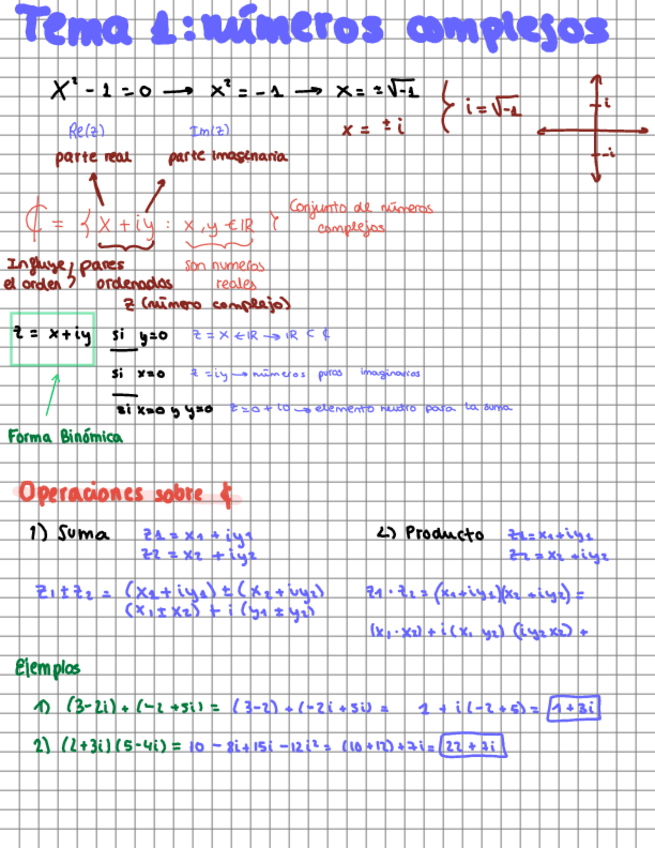 Tema 1: números complejos
x² - 1 = 0 → x² = -1 → x = ±√-1 { i = √-1
x = ±i
i
-i
Re(z) Im(z)
parte real parte imaginaria
ℂ = { x + iy : x, y ∈ ℝ } Conjunto de números complejos
Influye el orden pares ordenados son numeros reales
z (número complejo)
z = x + iy si y=0 z = x ∈ ℝ → ℝ ⊂ ℂ
si x=0 z = iy → números puros imaginarios
si x=0 y y=0 z = 0 + i0 → elemento neutro para la suma
Forma Binómica
Operaciones sobre ℂ
1) Suma z1 = x1 + iy1
z2 = x2 + iy2
z1 ± z2 = (x1 + iy1) ± (x2 + iy2)
(x1 ± x2) + i (y1 ± y2)
2) Producto z1 = x1 + iy1
z2 = x2 + iy2
z1 · z2 = (x1 + iy1)(x2 + iy2) =
(x1 · x2) + i (x1 y2) (iy2 x2) +
Ejemplos
1) (3-2i) + (-2+5i) = (3-2) + (-2i+5i) = 1 + i(-2+5) = 1+3i
2) (2+3i)(5-4i) = 10 - 8i + 15i - 12i² = (10+12) + 7i = 22 + 7i